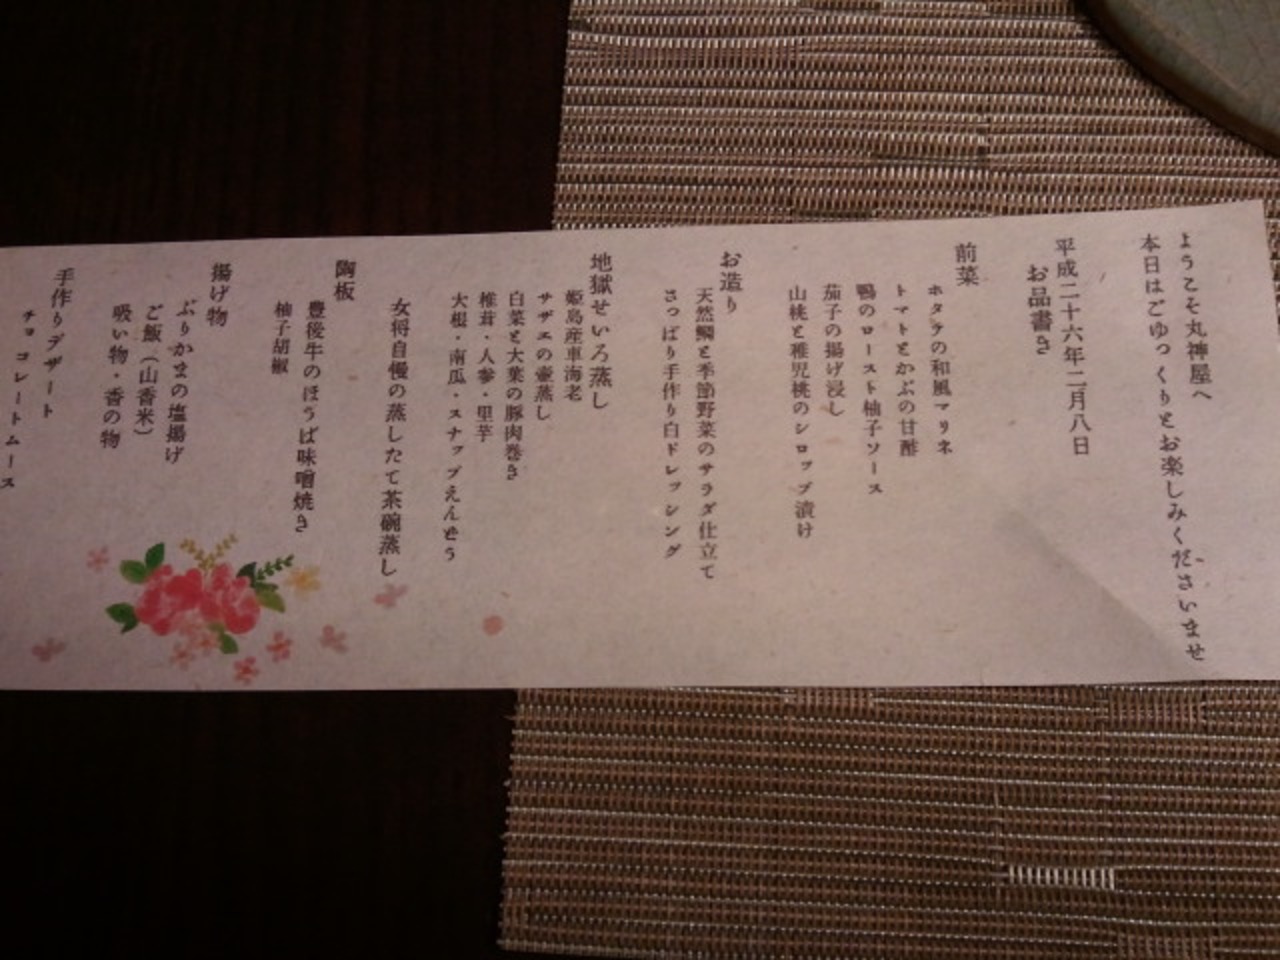 ようこそ丸神屋へ
本日はごゆっくりとお楽しみくださいませ
平成二十六年二月八日
お品書き
前菜
ホタテの和風マリネ
トマトとかぶの甘酢
鴨のロースト柚子ソース
茄子の揚げ浸し
山桃と稚児桃のシロップ漬け
お造り
天然鯛と季節野菜のサラダ仕立て
さっぱり手作り白ドレッシング
地獄せいろ蒸し
姫島産車海老
サザエの壷蒸し
白菜と大葉の豚肉巻き
椎茸・人参・里芋
大根・南瓜・スナップえんどう
女将自慢の蒸したて茶碗蒸し
陶板
豊後牛のほうば味噌焼き
柚子胡椒
揚げ物
ぶりかまの塩揚げ
ご飯（山香米）
吸い物・香の物
手作りデザート
チョコレートムース